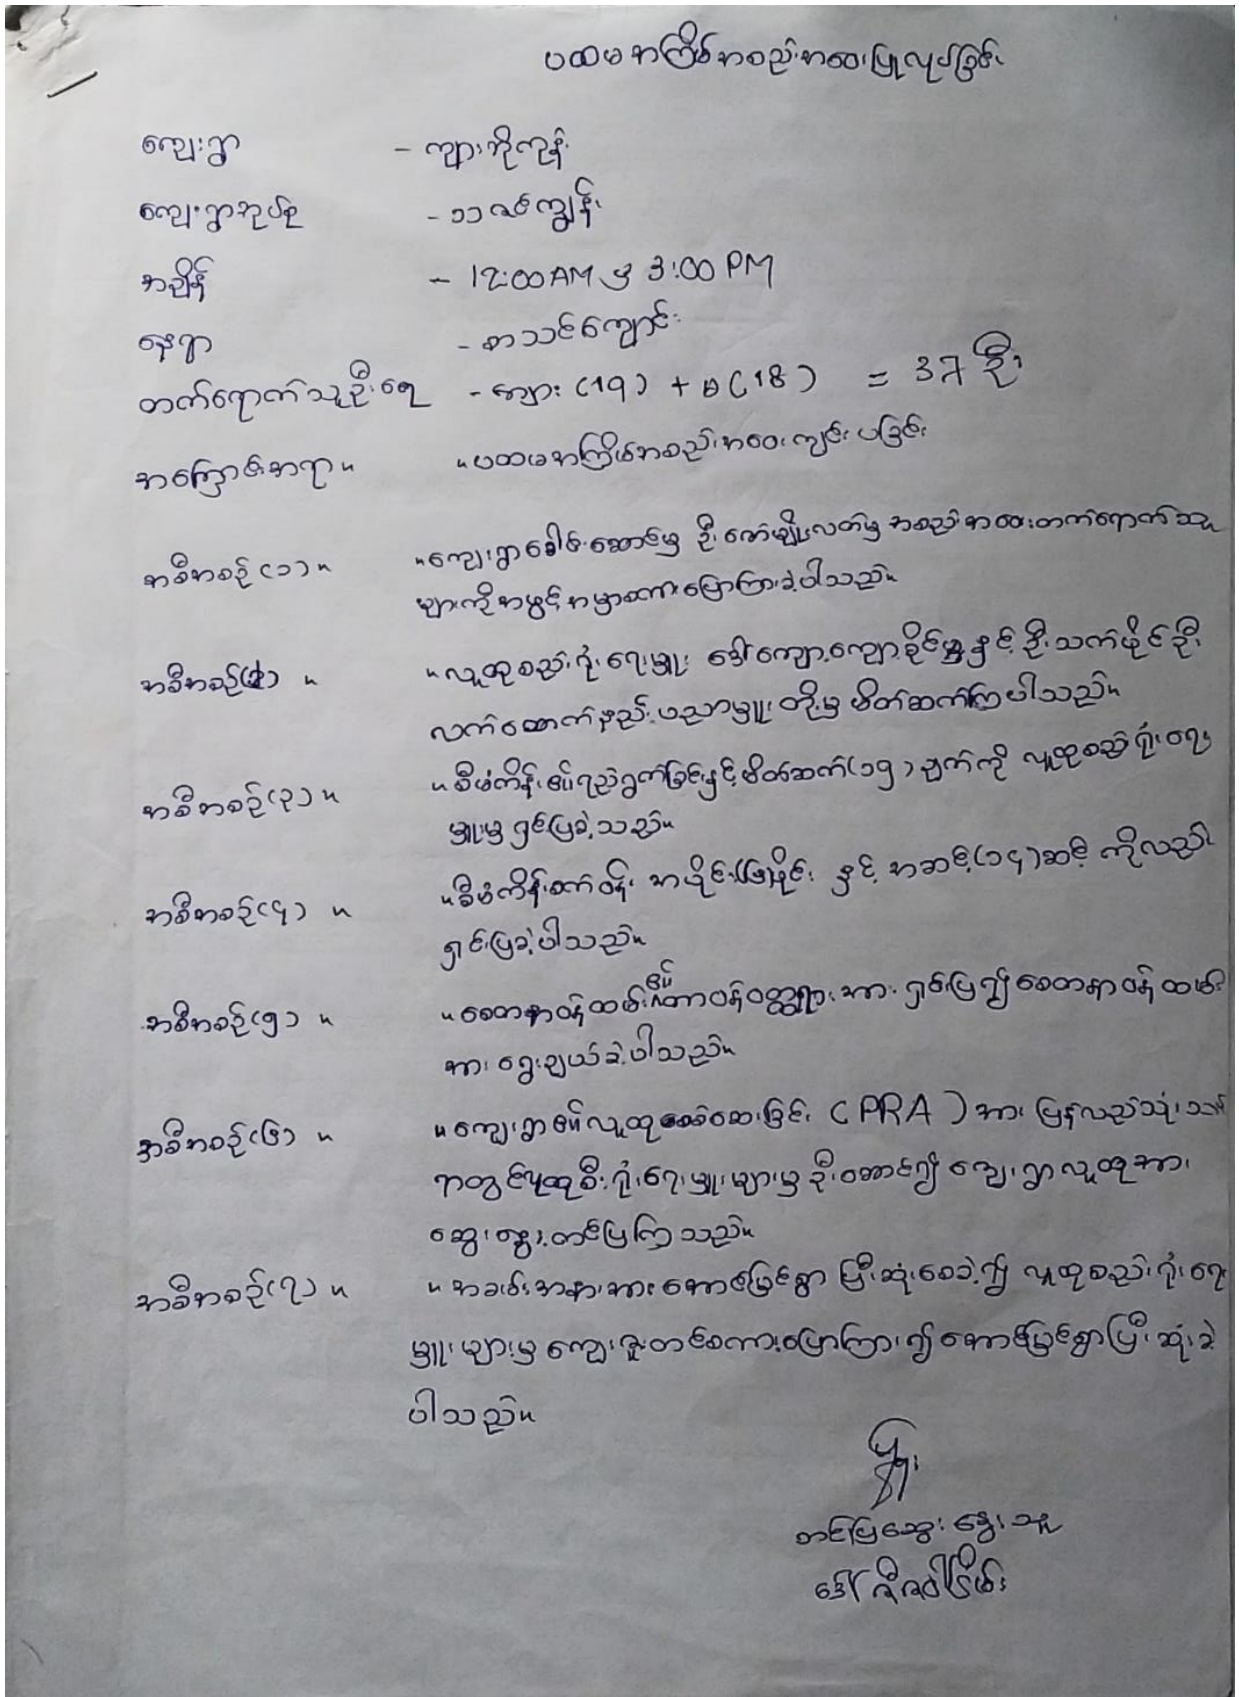 ပထမအကြိမ်အစည်းအဝေးပြုလုပ်ခြင်း
ကျေးရွာ - ကျားဘိုကုန်း
ကျေးရွာအုပ်စု - ၁၁ ကျွန်း
အချိန် - 12:00 AM မှ 3:00 PM
နေရာ - စာသင်ကျောင်း
တက်ရောက်သူဦးရေ - ကျား (19) + မ (18) = 37 ဦး
အကြောင်းအရာ ။ ။ပထမအကြိမ်အစည်းအဝေးကျင်းပခြင်း
အစီအစဉ်(၁) ။ ။ကျေးရွာခေါင်းဆောင်မှ ဦးဇော်မျိုးလတ်မှ အစည်းအဝေးတက်ရောက်သူ
များကိုအဖွင့်အမှာစကားပြောကြားခဲ့ပါသည်။
အစီအစဉ်(၂) ။ ။လူထုစည်းရုံးရေးမှူး ဒေါ်ကျော့ကျော့ခိုင်မှ နှင့် ဦးသက်ပိုင်ဦး
လက်ထောက်နည်းပညာမှူးတို့မှ မိတ်ဆက်ကြပါသည်။
အစီအစဉ်(၃) ။ ။စီမံကိန်း၏ရည်ရွယ်ခြင်းနှင့်မိတ်ဆက်(၁၅)ချက်ကို လူထုစည်းရုံးရေး
မှူးမှ ရှင်းပြခဲ့သည်။
အစီအစဉ်(၄) ။ ။စီမံကိန်းစက်ဝန်း အပိုင်း(၆)ပိုင်း နှင့် အဆင့်(၁၄)ဆင့် ကိုလည်း
ရှင်းပြခဲ့ပါသည်။
အစီအစဉ်(၅) ။ ။စေတနာ့ဝန်ထမ်း၏တာဝန်ဝတ္တရားအား ရှင်းပြ၍ စေတနာ့ဝန်ထမ်း
အား ရွေးချယ်ခဲ့ပါသည်။
အစီအစဉ်(၆) ။ ။ကျေးရွာ၏လူထုစစ်ဆေးခြင်း (PRA) အား ပြန်လည်သုံးသပ်
ရာတွင်လူထုစည်းရုံးရေးမှူးများမှ ဦးဆောင်၍ ကျေးရွာလူထုအား
ဆွေးနွေးတင်ပြကြသည်။
အစီအစဉ်(၇) ။ ။အခမ်းအနားအား အောင်မြင်စွာ ပြီးဆုံးစေခဲ့၍ လူထုစည်းရုံးရေး
မှူးများမှ ကျေးဇူးတင်စကားပြောကြား၍ အောင်မြင်စွာပြီးဆုံးခဲ့
ပါသည်။
တင်ပြဆွေးနွေးသူ
ဒေါ်